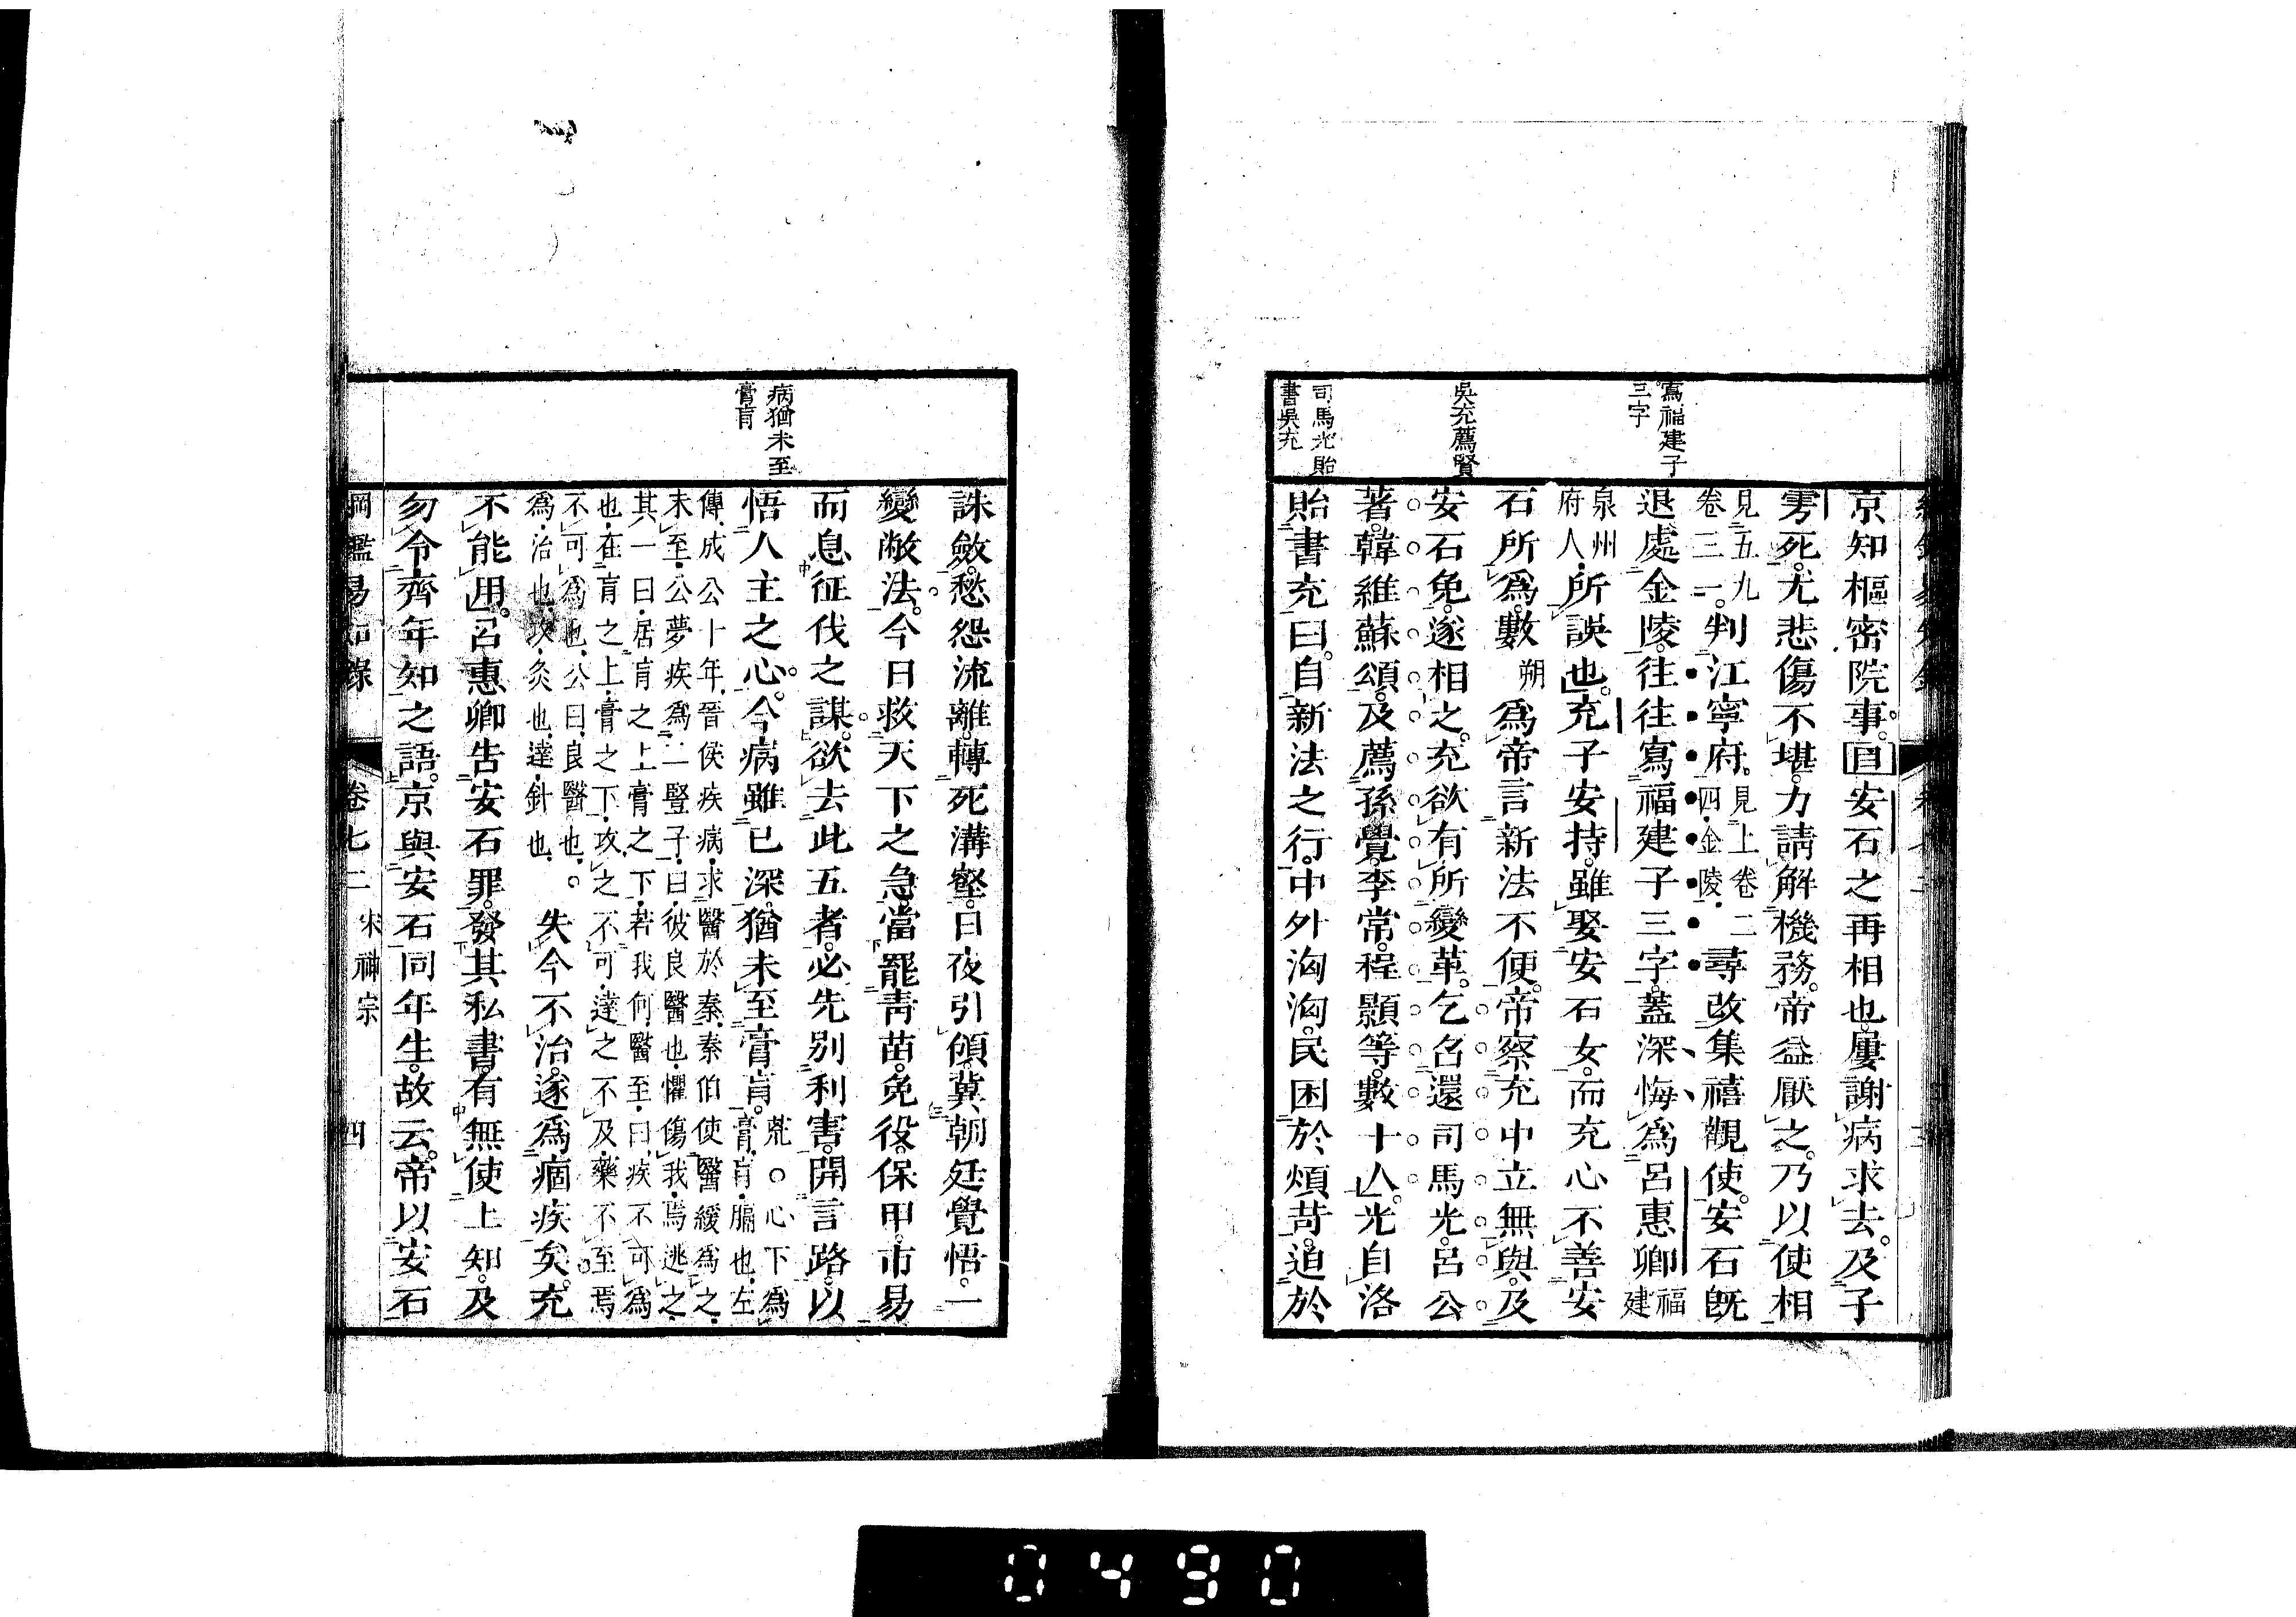 寫福建子
三字
吳充薦賢
司馬光貽
書吳充
京知樞密院事。目安石之再相也。屢謝病求去。及子
雱死。尤悲傷不堪。力請解機務。帝益厭之。乃以使相
見五九
卷三一。判江寧府。見上卷二
四・金陵・尋改集禧觀使。安石既
退處金陵。往往寫福建子三字。蓋深悔爲呂惠卿福
建
泉州
府人・所誤也。充子安持。雖娶安石女。而充心不善安
石所爲。數朔爲帝言新法不便。帝察充中立無與。及
安石免。遂相之。充欲有所變革。乞召還司馬光。呂公
著。韓維蘇頌。及薦孫覺李常。程顥等。數十人。光自洛
貽書充曰。自新法之行。中外洶洶。民困於煩苛。迫於
病猶未至
膏肓
誅斂。愁怨流離。轉死溝壑。日夜引領。冀朝廷覺悟。一
變敝法。今日救天下之急。當罷靑苗。免役。保甲。市易
而息征伐之謀。欲去此五者。必先別利害。開言路。以
悟人主之心。今病雖已深。猶未至膏肓。荒。○心下爲
膏・肓・膈也・左
傳・成公十年・晉侯疾病・求醫於秦・秦伯使醫緩爲之・
未至・公夢疾爲二豎子・曰・彼良醫也・懼傷我・焉逃之・
其一曰・居肓之上膏之下・若我何・醫至・曰・疾不可爲
也・在肓之上・膏之下・攻之不可・達之不及・藥不至焉
不可爲也・公曰・良醫也・○
爲・治也・攻・灸也・達・針也・失今不治。遂爲痼疾矣。充
不能用。呂惠卿吿安石罪。發其私書。有無使上知。及
勿令齊年知之語。京與安石同年生。故云。帝以安石
綱鑑易知錄 卷七二 宋神宗 四